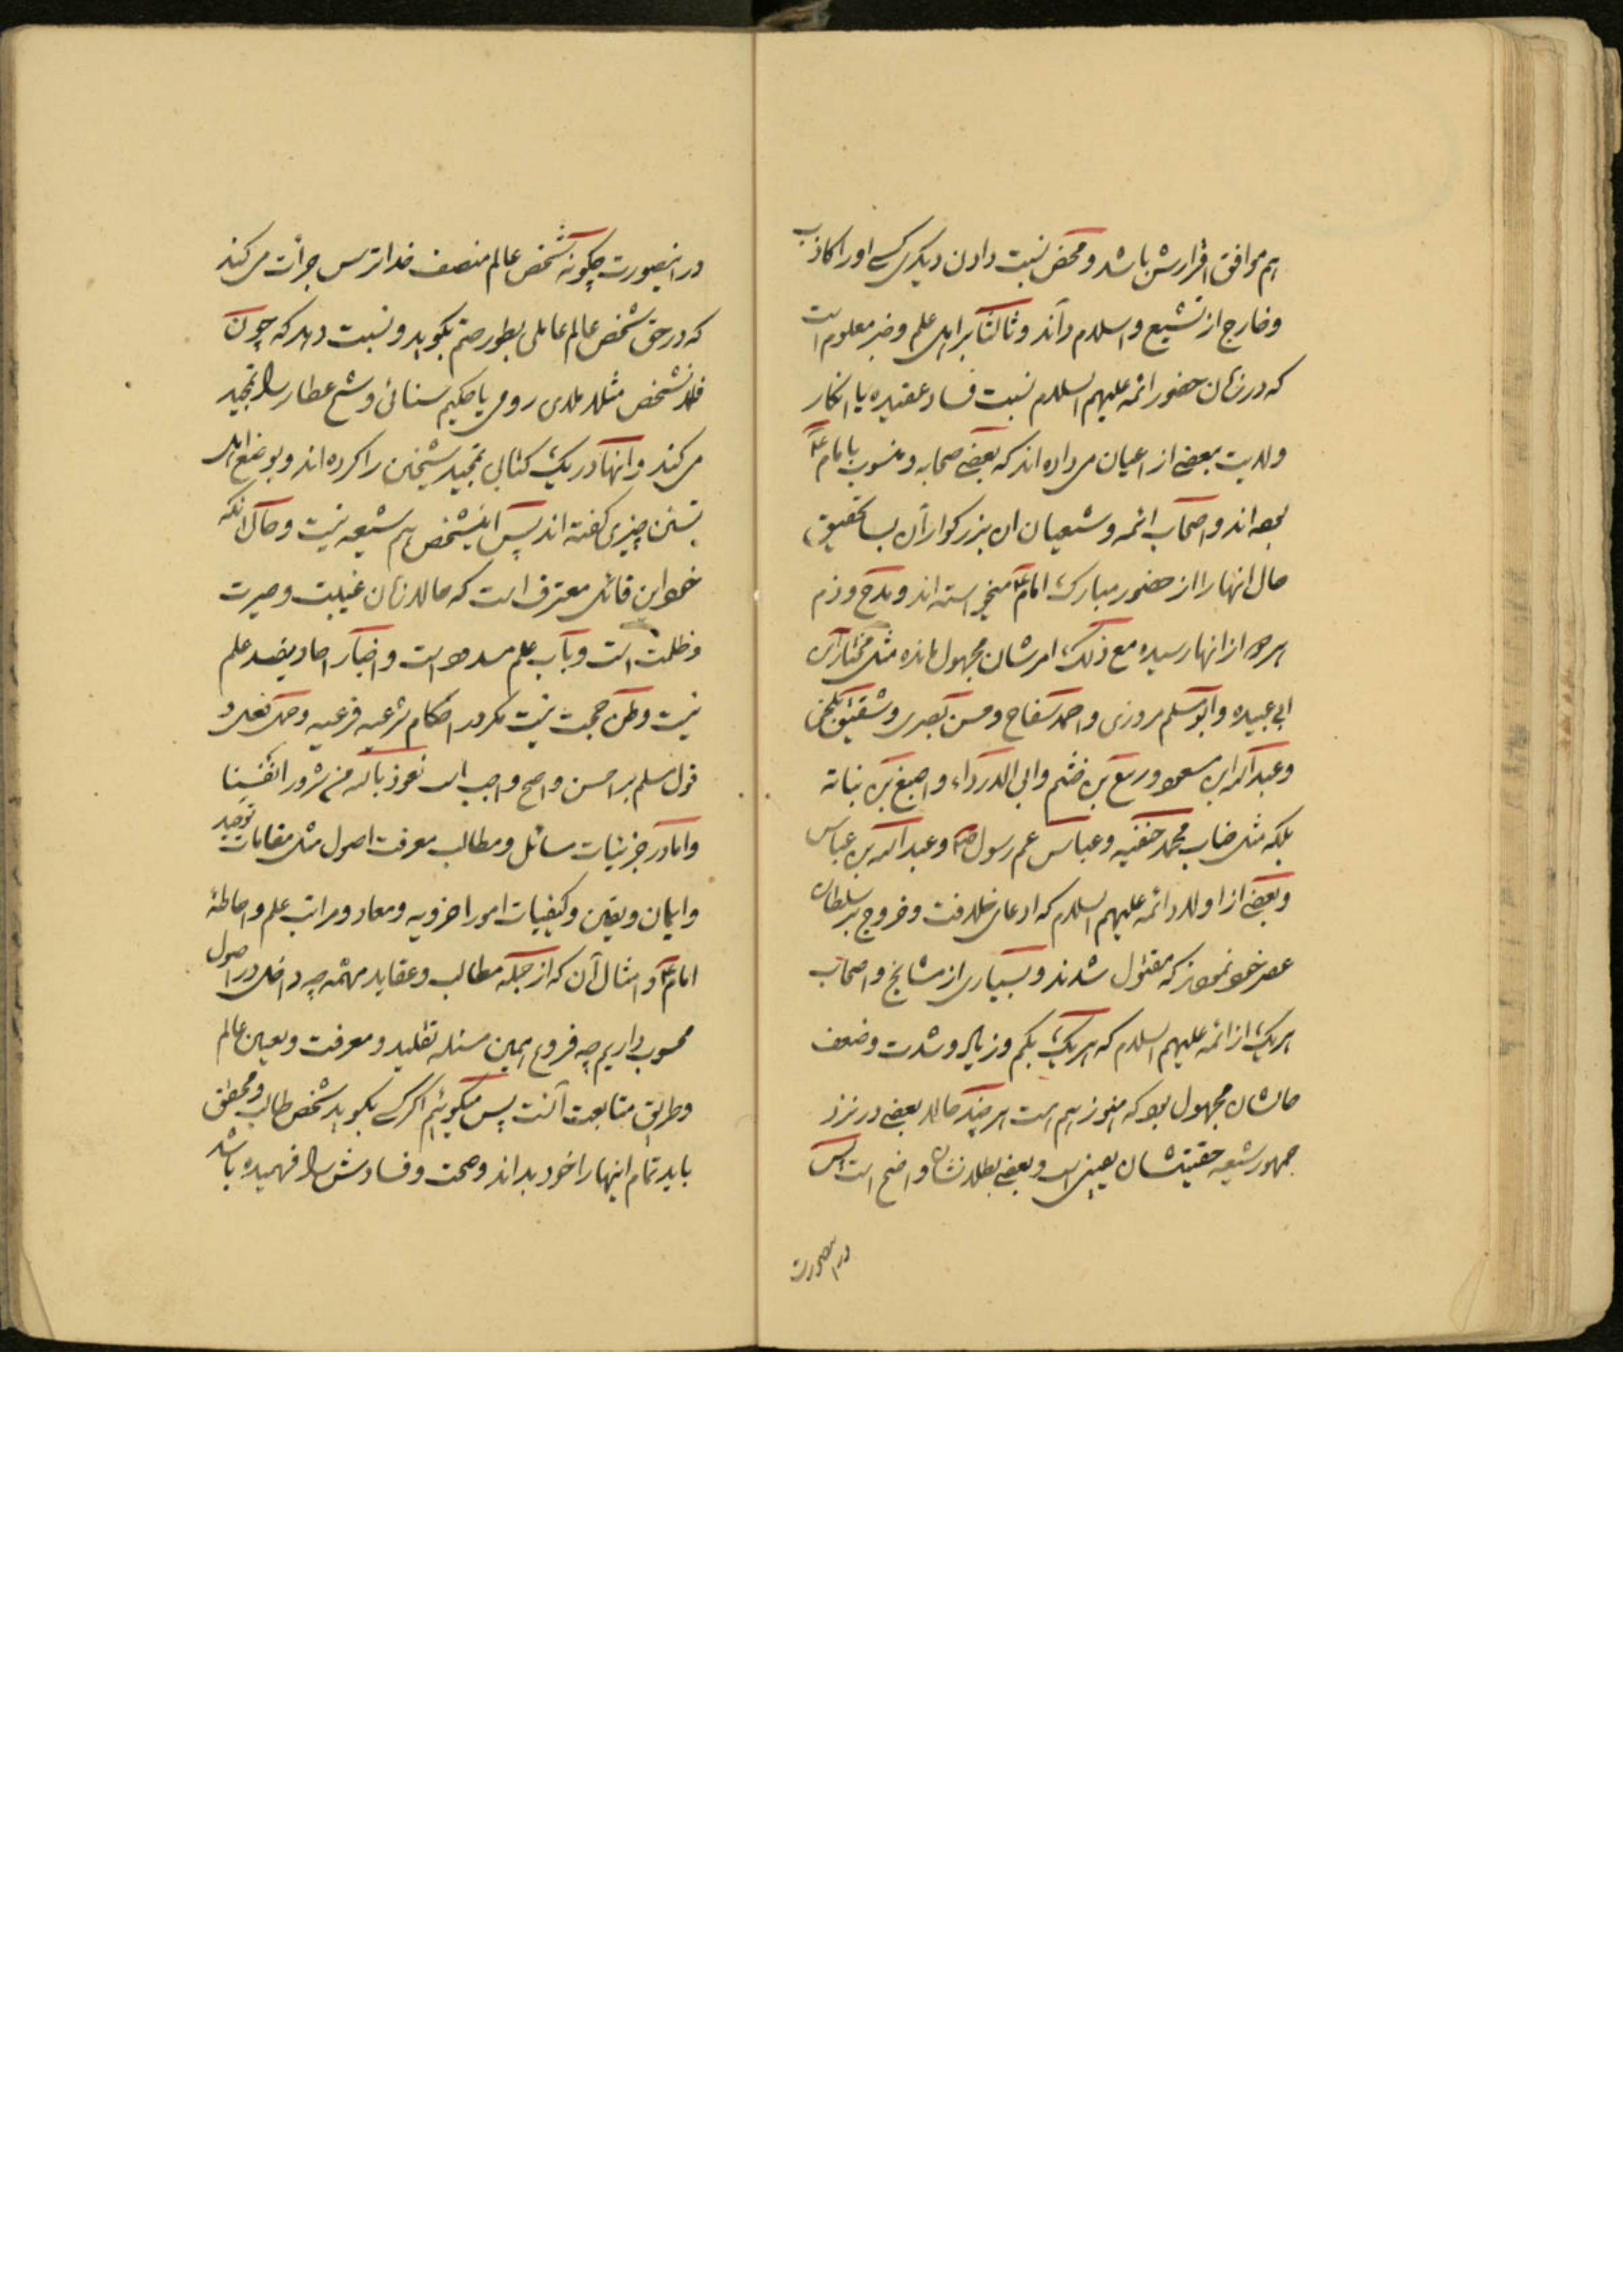 هم موافق اقرارش باشد و محض نسبت دادن دیگری کسی او را کاذب
و خارج از تشیع و اسلام داند و ثالثا بر اهل علم و خبر معلوم است
که در زمان حضور ائمه علیهم السلام نسبت فساد عقیده یا انکار
ولایت ببعضی از اعیان می داده اند که بعضی صحابه و منسوب بامام ع
بوده اند و اصحاب ائمه و شیعیان ان بزرگواران بسا تحقیق
حال انها را از حضور مبارک امام ع میخواسته اند و مدح و ذم
هر دو از انها رسیده مع ذلک امرشان مجهول مانده مثل مختار بن
ابی عبیده و ابو مسلم مروزی و احمد سفاح و حسن بصری و شقیق بلخی
و عبد الله ابن مسعود و ربیع بن خثیم و ابی الدرداء و اصبغ بن نباته
بلکه مثل جناب محمد حنفیه و عباس عم رسول ص و عبد الله بن عباس
و بعضی از اولاد ائمه علیهم السلام که ادعای خلافت و خروج بر سلطان
عصر خود نمودند که مقتول شدند و بسیاری از مشایخ و اصحاب
هر یک از ائمه علیهم السلام که هر یک بکم و زیاد و شدت و ضعف
حالشان مجهول بود که هنوز هم است هر چند حالا بعضی در نزد
جمهور شیعه حقیتشان یقینی است و بعضی بطلانشان واضح است پس
در اینصورت
در اینصورت چگونه شخص عالم منصف خدا ترس جرأت می کند
که در حق شخص عالم عاملی بطور حتم بگوید و نسبت دهد که چون
فلانشخص مثلا ملای رومی یا حکیم سنائی و شیخ عطار را تمجید
می کند و انها در یک کتابی تمجید شیخین را کرده اند و بوضع اهل
تسنن چیزی گفته اند پس اینشخص هم شیعه نیست و حال انکه
خود این قائل معترف است که حالا زمان غیبت و حیرت
و ظلمت است و باب علم مسدود است و اخبار احاد مفید علم
نیست و ظن حجت نیست مگر در احکام شرعیه فرعیه و حمل فعل و
قول مسلم بر احسن و اصح واجب است نعوذ بالله من شرور انفسنا
و اما در جزئیات مسائل و مطالب معرفت اصول مثل مقامات توحید
و ایمان و یقین و کیفیات امور اخرویه و معاد و مراتب علم و احاطهٔ
امام ع و امثال آن که از جمله مطالب و عقاید مهمّه چه داخل در اصول
محسوب داریم چه فروع همین مسئله تقلید و معرفت و تعیین عالم
و طریق متابعت آنست پس میگوئیم اگر کسی بگوید شخص طالب و محقق
باید تمام اینها را خود بداند و صحت و فسادش را فهمیده باشد